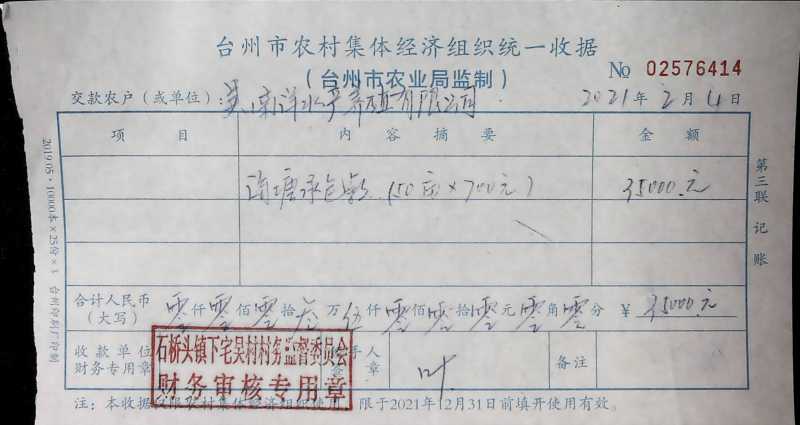 台州市农村集体经济组织统一收据
(台州市农业局监制)
No 02576414
交款农户(或单位):南洋水产养殖有限公司 2021年2月4日
项目 内容摘要 金额
塘承包款 (50亩×700元) 35000.元
合计人民币(大写) 零仟零佰零拾叁万伍仟零佰零拾零元零角零分 ¥35000.元
收款单位财务专用章 经手人签章 叶 备注
石桥头镇下宅吴村村务监督委员会
财务审核专用章
注:本收据仅限农村集体经济组织使用,限于2021年12月31日前填开使用有效。
第三联 记账
2019.05·10000本×25份×3 台州印刷厂印制